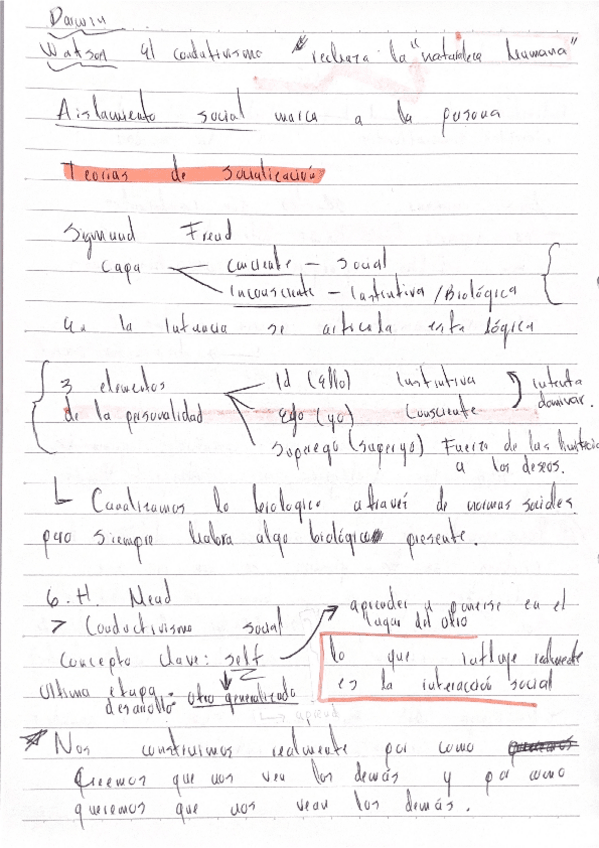 Darwin
Watson El conductivismo rechaza la "naturaleza humana"
Aislamiento social marca a la persona
Teorías de socialización
Sigmund Freud
Capa
Conciente – Social
Inconsciente – Instintiva / Biológica
En la Infancia se articula esta lógica
3 elementos
de la personalidad
Id (Ello) Instintiva
Ego (yo) Consciente
intenta
dominar.
Superego (superyo) Fuerza de las
a los deseos.
Canalizamos lo biologico atravez de normas sociales.
pero siempre habra algo biológico presente.
G.H. Mead
> Conductivismo social
Concepto clave: self
aprender a ponerse en el
lugar del otro
Ultima etapa
desarollo: Otro generalizado
lo que influye realmente
es la interacción social
* Nos construimos realmente por como
Creemos que nos ven los demás y por como
queremos que nos vean los demás.